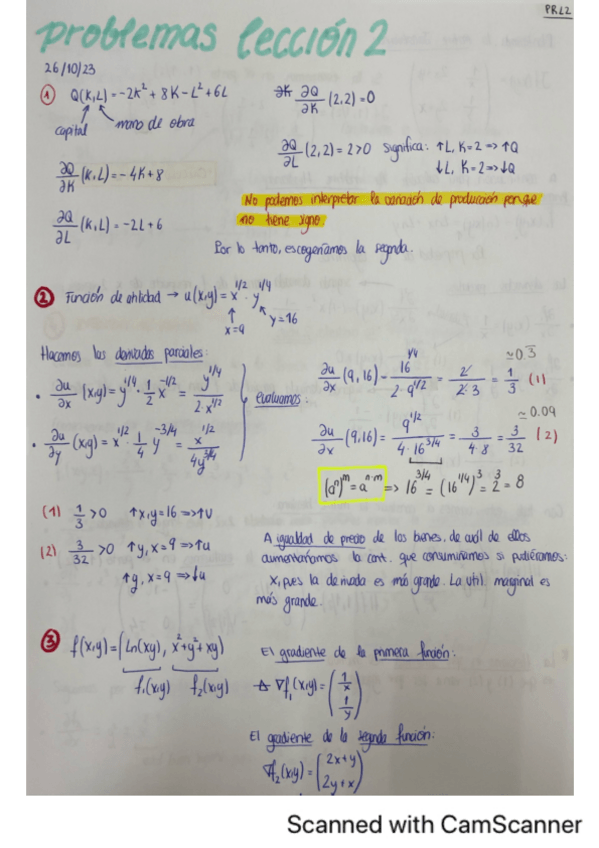 PRL2
Problemas lección 2
26/10/23
① Q(K,L) = -2K² + 8K - L² + 6L
capital mano de obra
∂Q/∂K (K,L) = -4K+8
∂Q/∂L (K,L) = -2L+6
∂K ∂Q/∂K (2,2) = 0
∂Q/∂L (2,2) = 2 > 0 Significa: ↑L, K=2 => ↑Q
↓L, K=2 => ↓Q
No podemos interpretar la variación de producción porque
no tiene signo
Por lo tanto, escogeríamos la segunda.
② Función de utilidad → u(x,y) = x^1/2 · y^1/4
x=9 y=16
Hacemos las derivadas parciales:
· ∂u/∂x (x,y) = y^1/4 · 1/2 x^-1/2 = y^1/4 / 2·x^1/2
· ∂u/∂y (x,y) = x^1/2 · 1/4 y^-3/4 = x^1/2 / 4y^3/4
Evaluamos:
∂u/∂x (9,16) = 16^1/4 / 2·9^1/2 = 2 / 2·3 = 1/3 (1)
≃0.3
∂u/∂x (9,16) = 9^1/2 / 4·16^3/4 = 3 / 4·8 = 3/32 (2)
≃0.09
(aⁿ)^m = a^n·m => 16^3/4 = (16^1/4)³ = 2³ = 8
(1) 1/3 > 0 ↑x, y=16 => ↑U
(2) 3/32 > 0 ↑y, x=9 => ↑u
↑y, x=9 => ↓u
A igualdad de precio de los bienes, de cuál de ellos
aumentaríamos la cant. que consumiríamos si pudiéramos:
X, pues la derivada es más grande. La util. marginal es
más grande.
③ f(x,y) = (Ln(xy), x²+y²+xy)
f₁(x,y) f₂(x,y)
El gradiente de la primera función:
∇f₁(x,y) = (1/x 1/y)
El gradiente de la segunda función:
∇f₂(x,y) = (2x+y 2y+x)
Scanned with CamScanner